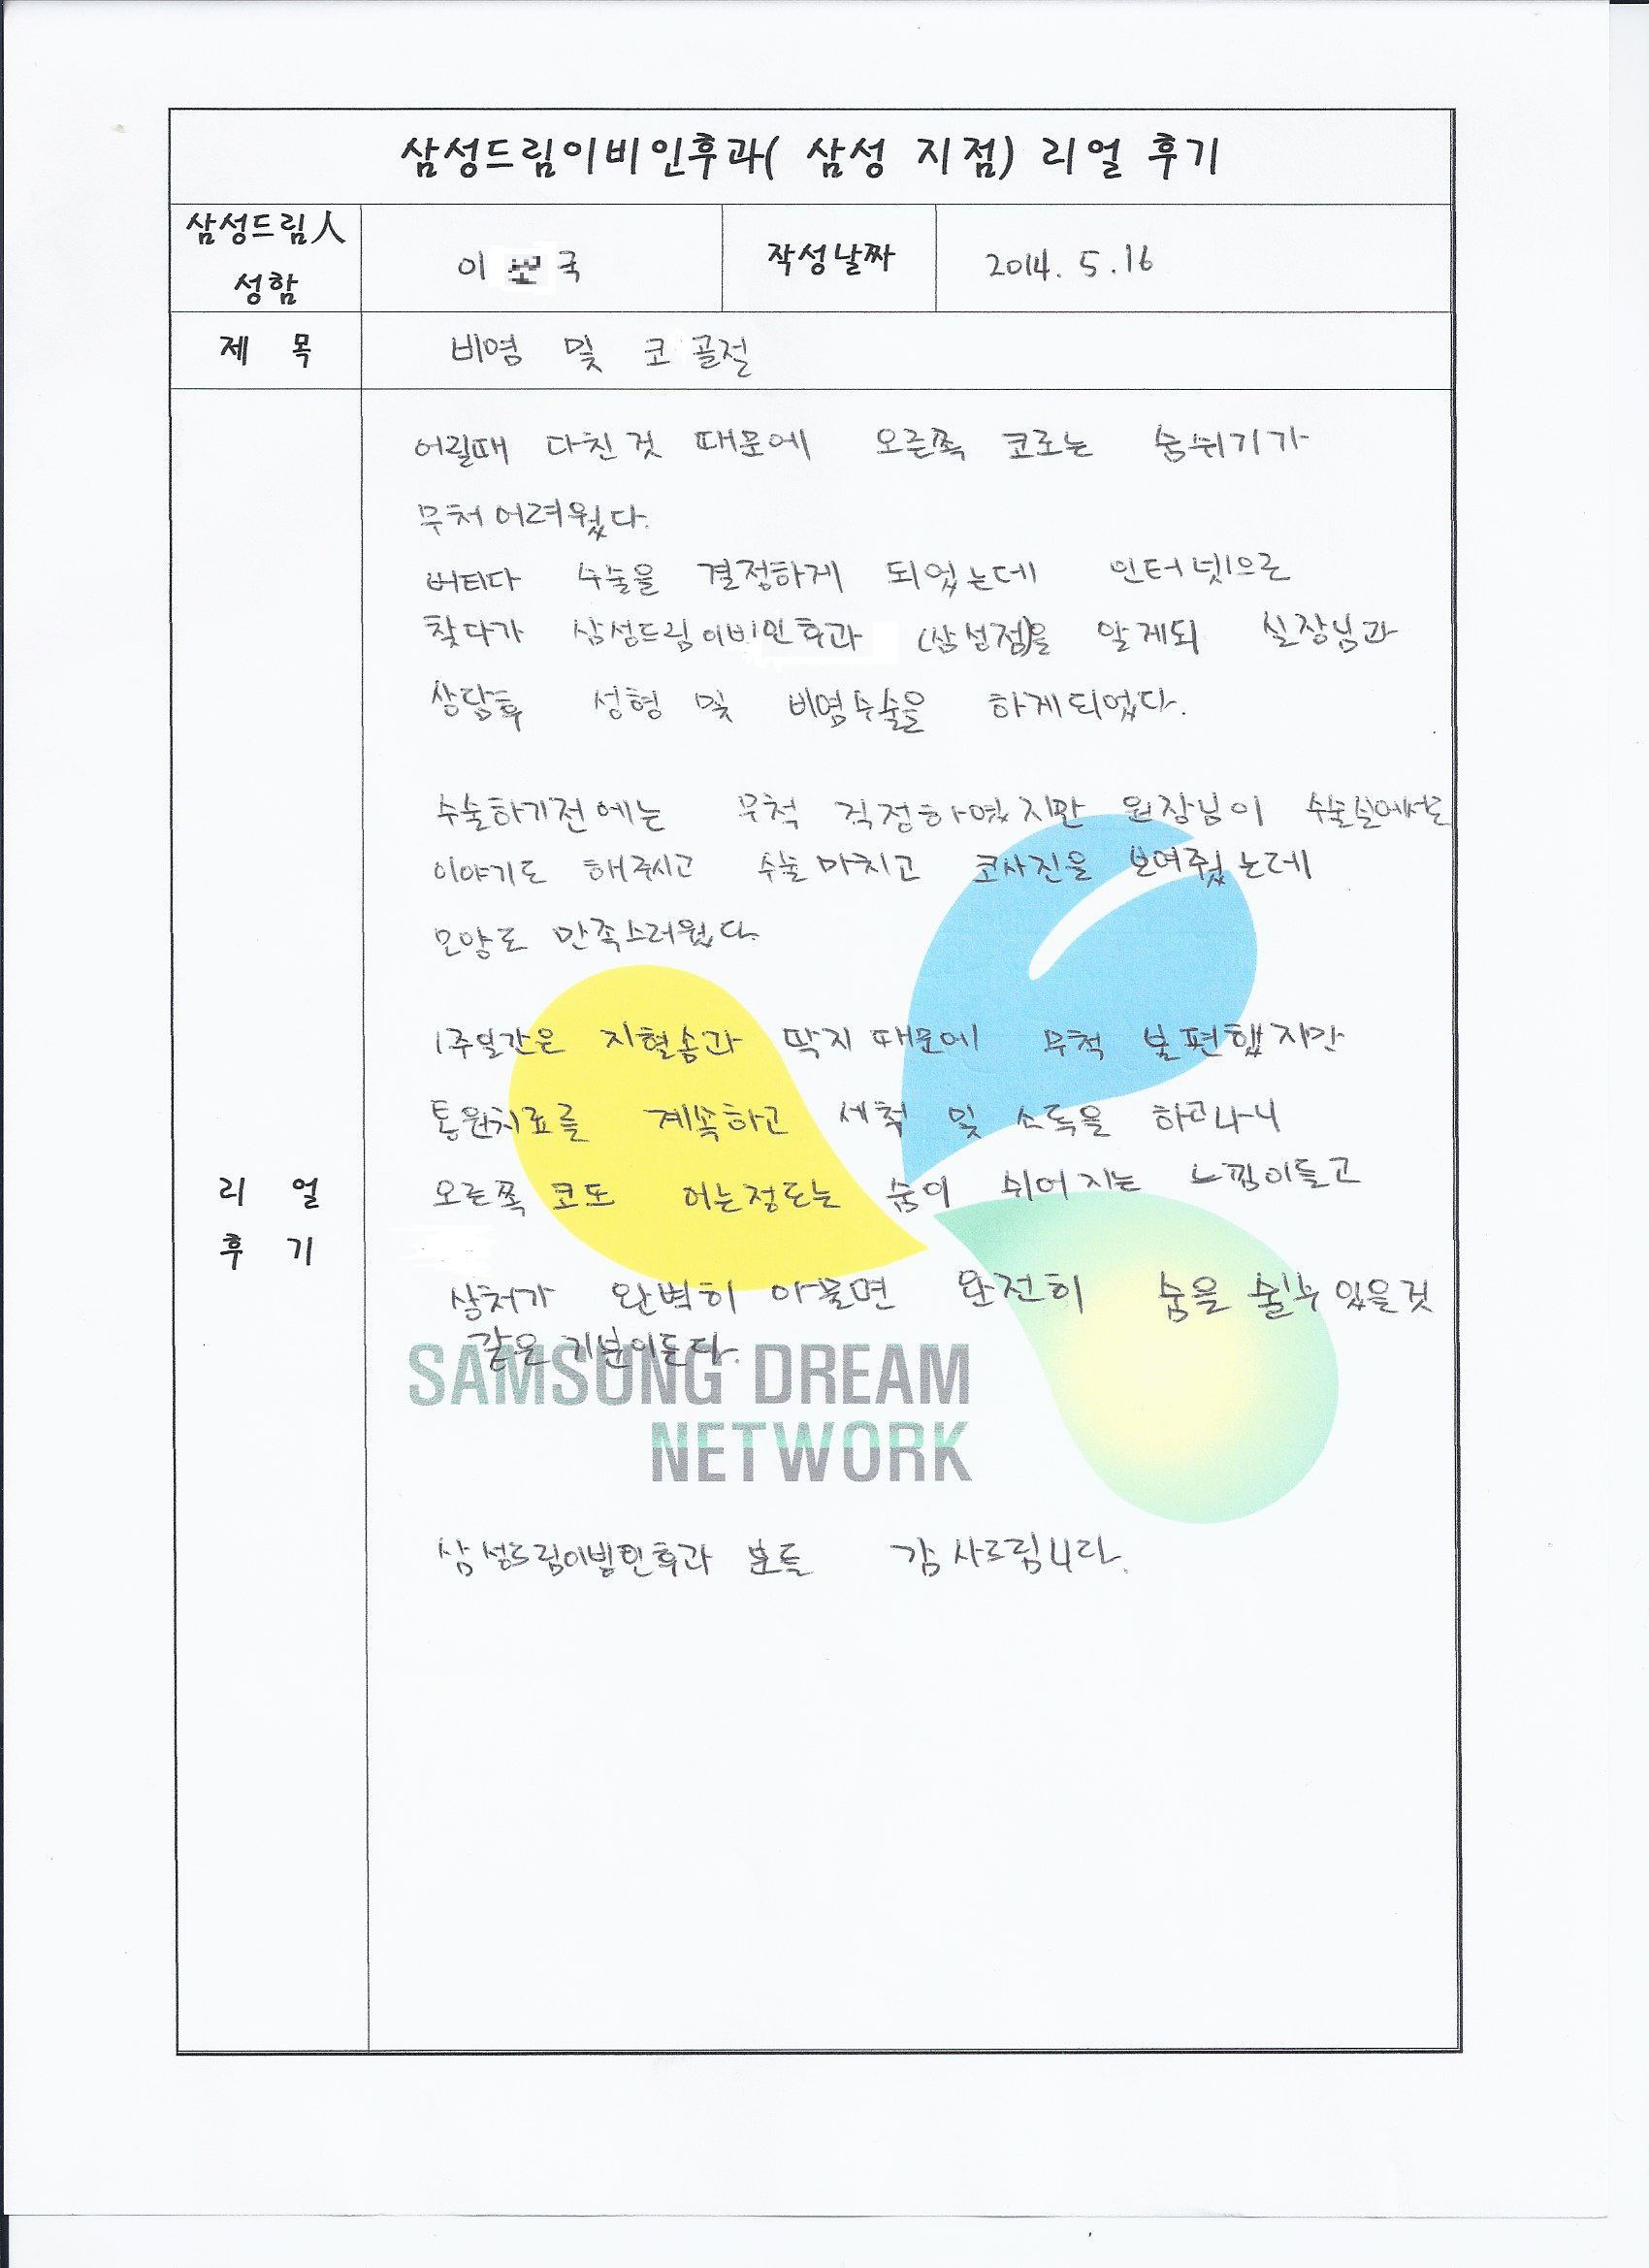 삼성드림이비인후과( 삼성 지점) 리얼 후기
삼성드림人
성함
이 국
작성날짜
2014. 5. 16
제 목
비염 및 코 골절
리 얼
후 기
어릴때 다친것 때문에 오른쪽 코로는 숨쉬기가
무처 어려웠다.
버티다 수술을 결정하게 되었는데 인터넷으로
찾다가 삼성드림이비인후과 (삼성점)을 알게되 실장님과
상담후 성형 및 비염수술을 하게되었다.
수술하기전에는 무척 걱정하였지만 원장님이 수술실에서도
이야기도 해주시고 수술 마치고 코사진을 보여줬는데
모양도 만족스러웠다.
1주일간은 지혈솜과 딱지 때문에 무척 불편했지만
통원치료를 계속하고 세척 및 소독을 하고나니
오른쪽 코도 어느정도는 숨이 쉬어지는 느낌이들고
상처가 완벽히 아물면 완전히 숨을 쉴수 있을것
같은 기분이든다.
SAMSUNG DREAM
NETWORK
삼성드림이빈인후과 분들 감사드립니다.